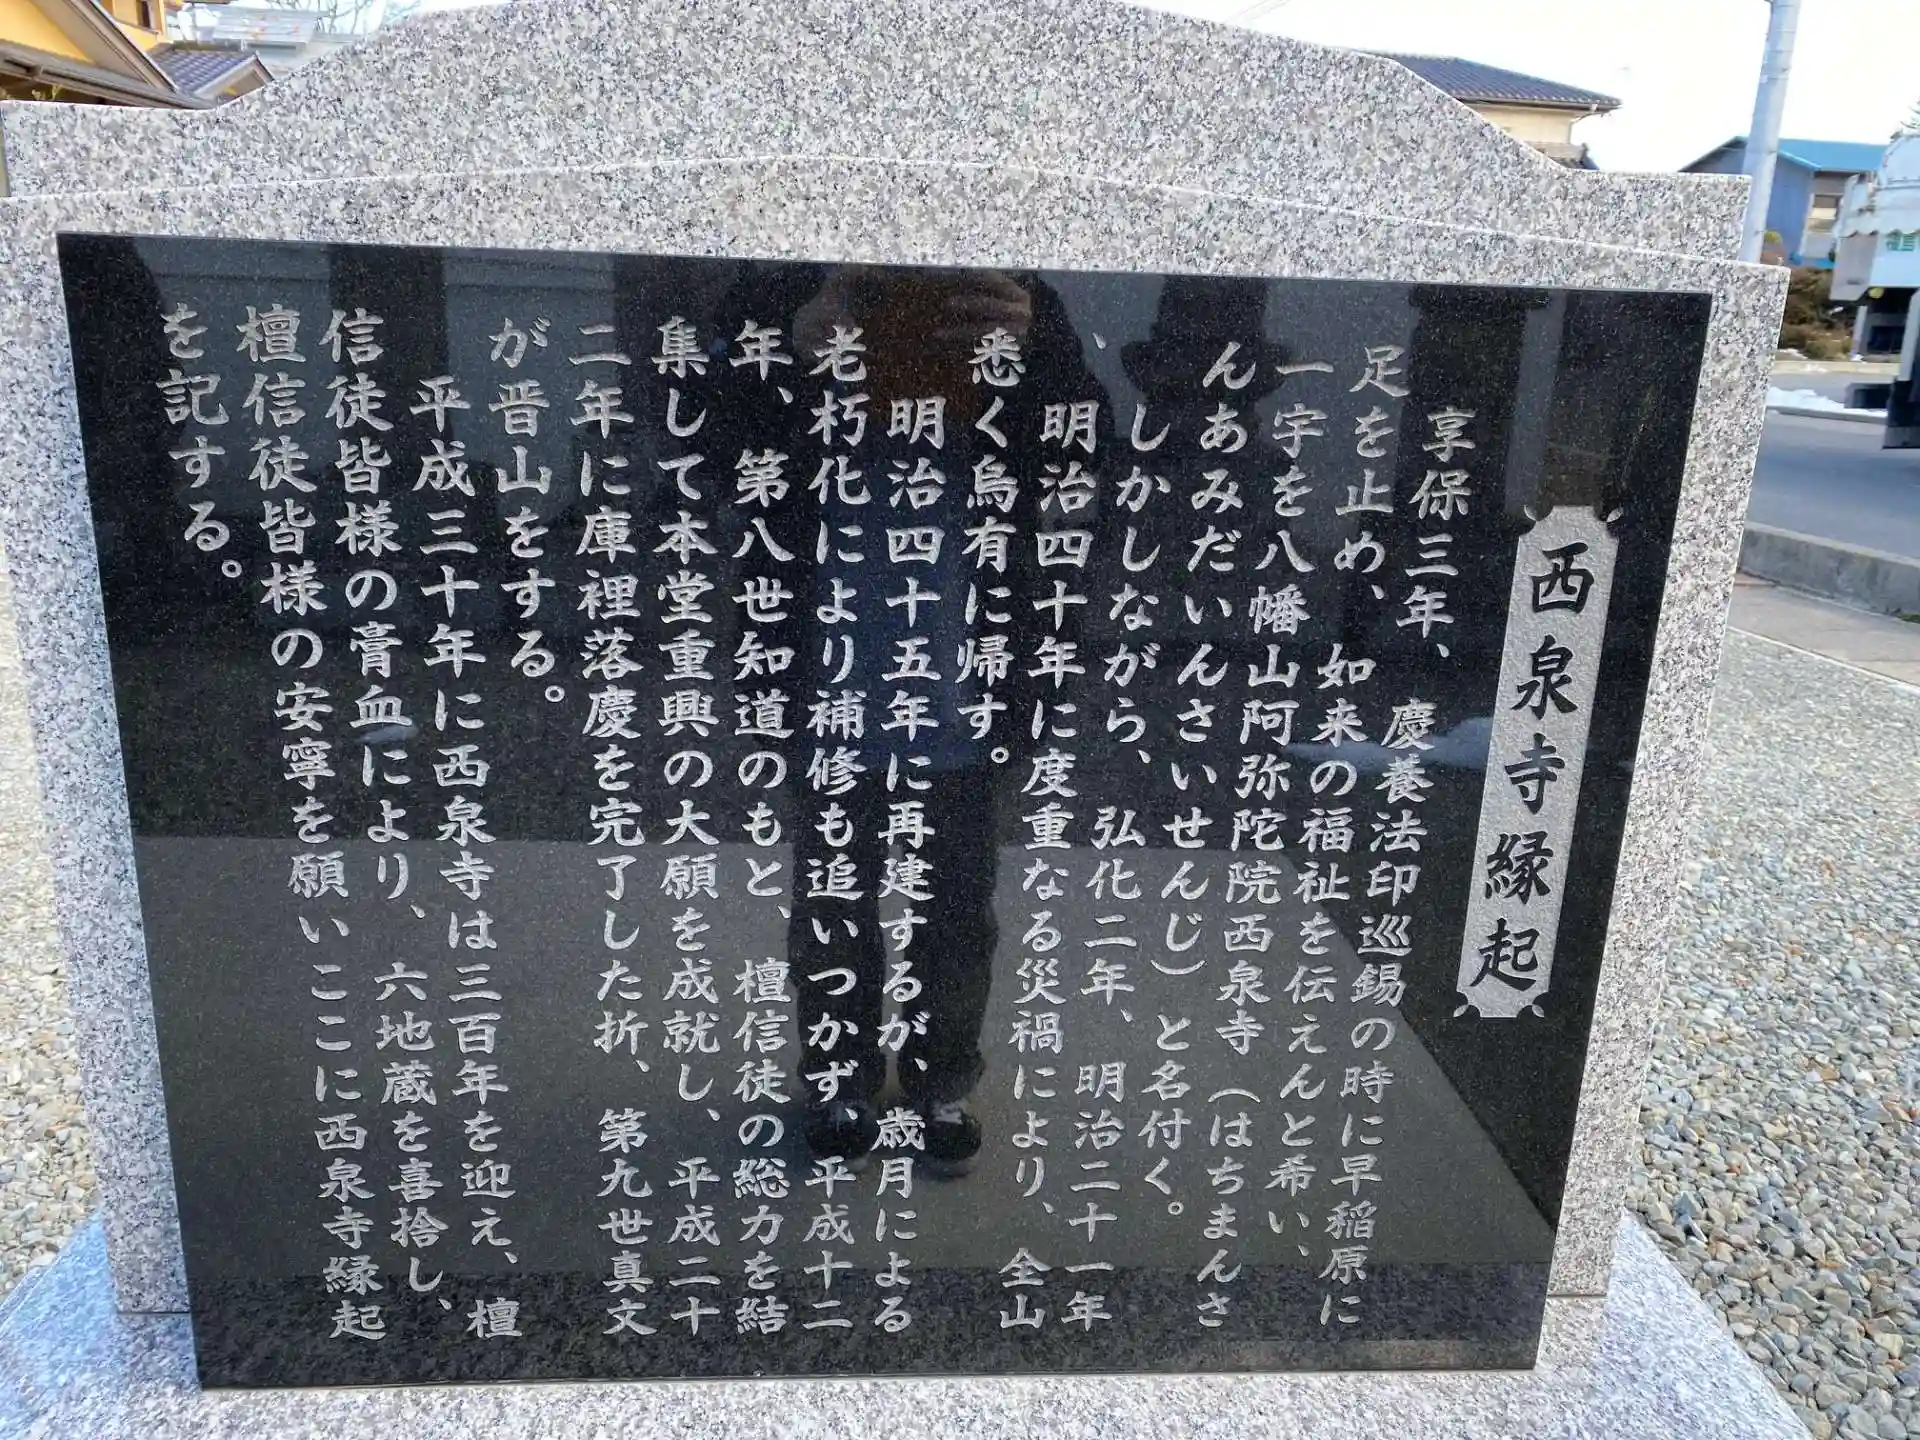 西泉寺縁起
享保三年、慶養法印巡錫の時に早稲原に
足を止め、如来の福祉を伝えんと希い、
一宇を八幡山阿弥陀院西泉寺（はちまんさ
んあみだいんさいせんじ）と名付く。
しかしながら、弘化二年、明治二十一年
、明治四十年に度重なる災禍により、全山
悉く烏有に帰す。
明治四十五年に再建するが、歳月による
老朽化により補修も追いつかず、平成十二
年、第八世知道のもと、檀信徒の総力を結
集して本堂重興の大願を成就し、平成二十
二年に庫裡落慶を完了した折、第九世真文
が晋山をする。
平成三十年に西泉寺は三百年を迎え、檀
信徒皆様の膏血により、六地蔵を喜捨し、
檀信徒皆様の安寧を願いここに西泉寺縁起
を記する。